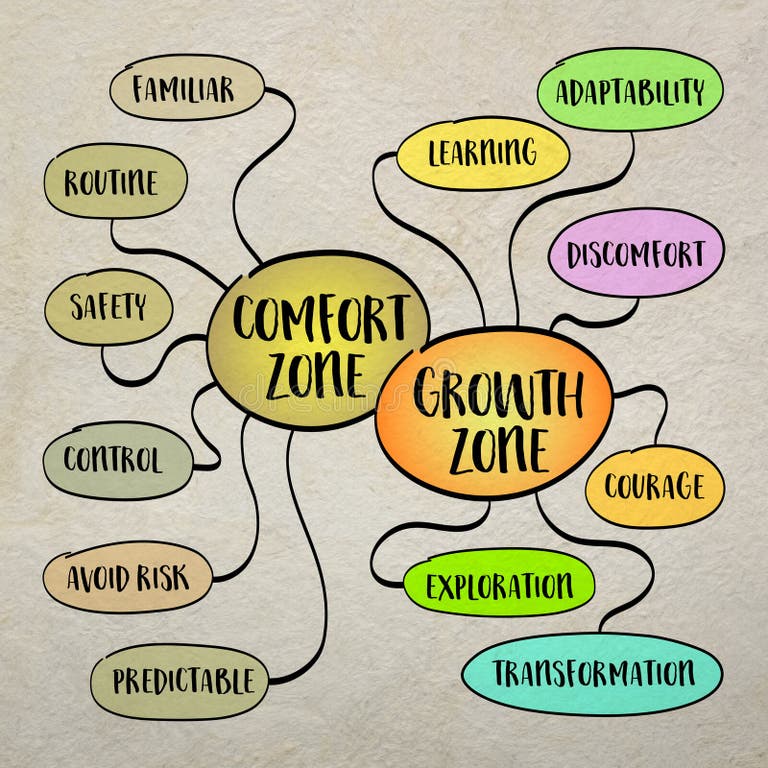 FAMILIAR
ROUTINE
SAFETY
CONTROL
AVOID RISK
PREDICTABLE
COMFORT
ZONE
GROWTH
ZONE
LEARNING
ADAPTABILITY
DISCOMFORT
COURAGE
EXPLORATION
TRANSFORMATION
dreamstime